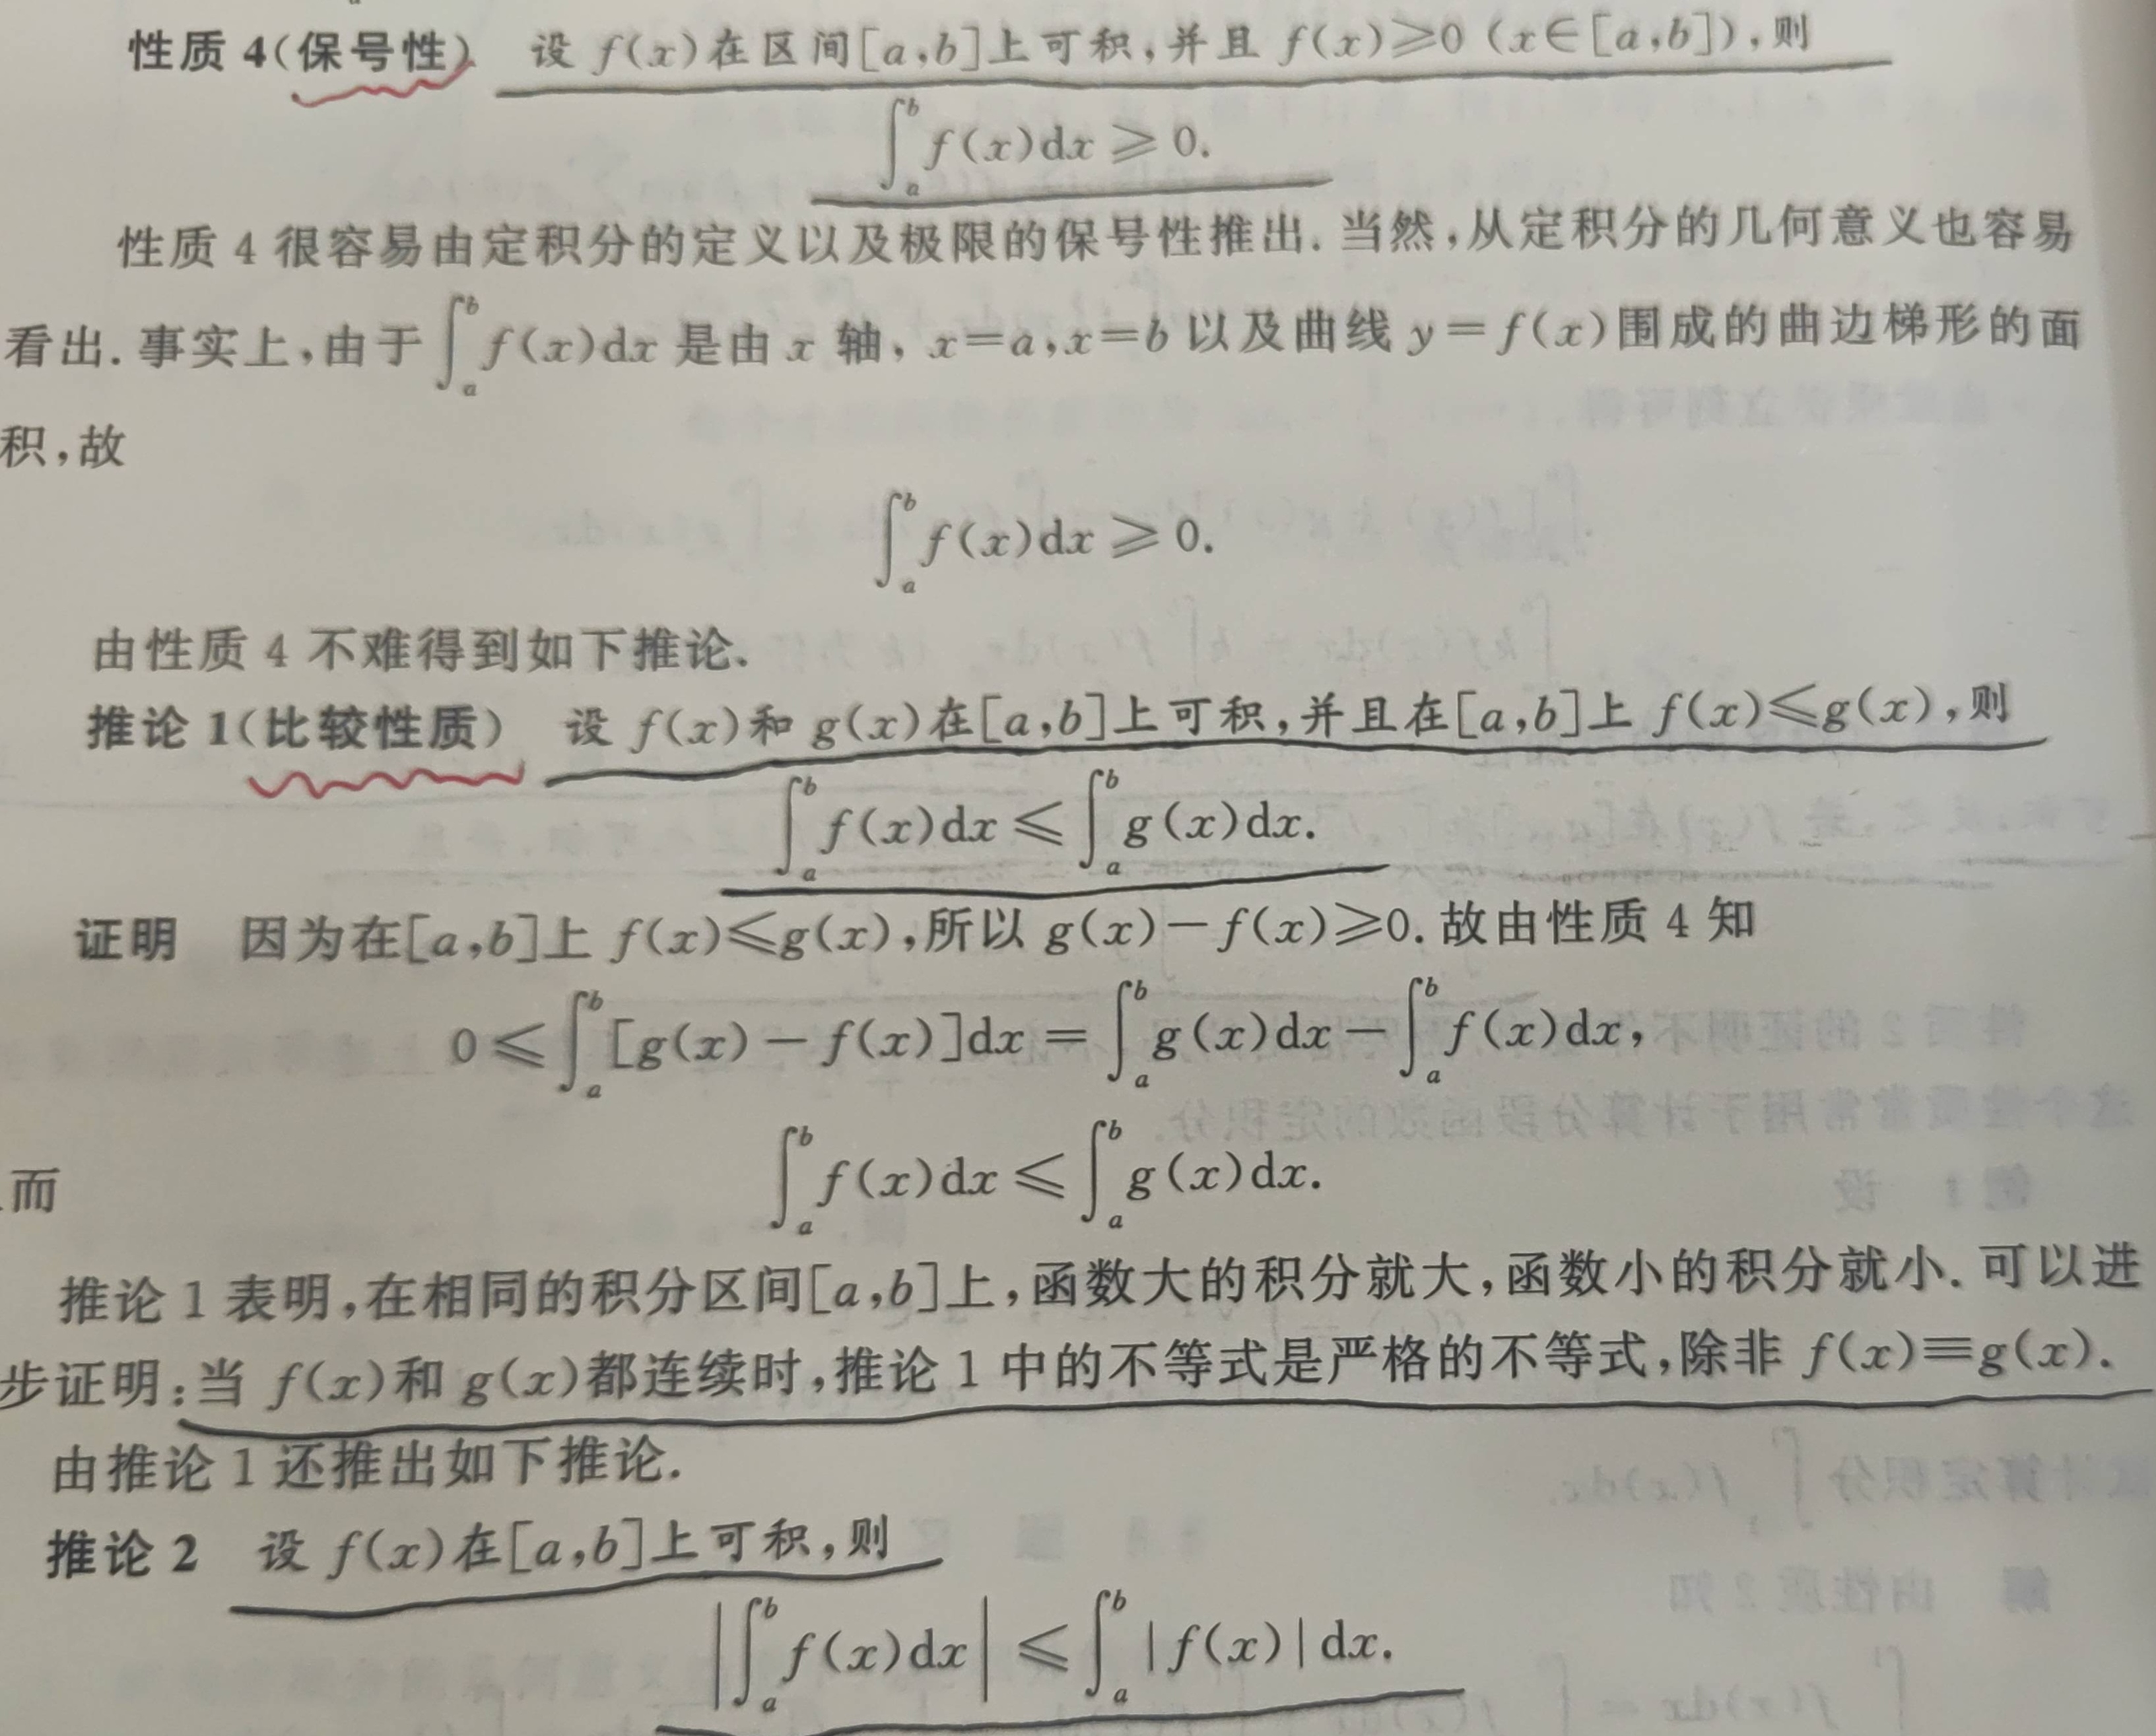 性质 4(保号性) 设 f(x)在区间[a,b]上可积,并且 f(x)≥0 (x∈[a,b]),则
∫_a^b f(x)dx ≥ 0.
性质 4 很容易由定积分的定义以及极限的保号性推出. 当然,从定积分的几何意义也容易
看出. 事实上,由于∫_a^b f(x)dx 是由 x 轴, x=a,x=b 以及曲线 y=f(x)围成的曲边梯形的面
积,故
∫_a^b f(x)dx ≥ 0.
由性质 4 不难得到如下推论.
推论 1(比较性质) 设 f(x)和 g(x)在[a,b]上可积,并且在[a,b]上 f(x)≤g(x),则
∫_a^b f(x)dx ≤ ∫_a^b g(x)dx.
证明 因为在[a,b]上 f(x)≤g(x),所以 g(x)-f(x)≥0. 故由性质 4 知
0 ≤ ∫_a^b [g(x) - f(x)]dx = ∫_a^b g(x)dx - ∫_a^b f(x)dx,
而 ∫_a^b f(x)dx ≤ ∫_a^b g(x)dx.
推论 1 表明,在相同的积分区间[a,b]上,函数大的积分就大,函数小的积分就小. 可以进
步证明:当 f(x)和 g(x)都连续时,推论 1 中的不等式是严格的不等式,除非 f(x)≡g(x).
由推论 1 还推出如下推论.
推论 2 设 f(x)在[a,b]上可积,则
|∫_a^b f(x)dx| ≤ ∫_a^b |f(x)|dx.